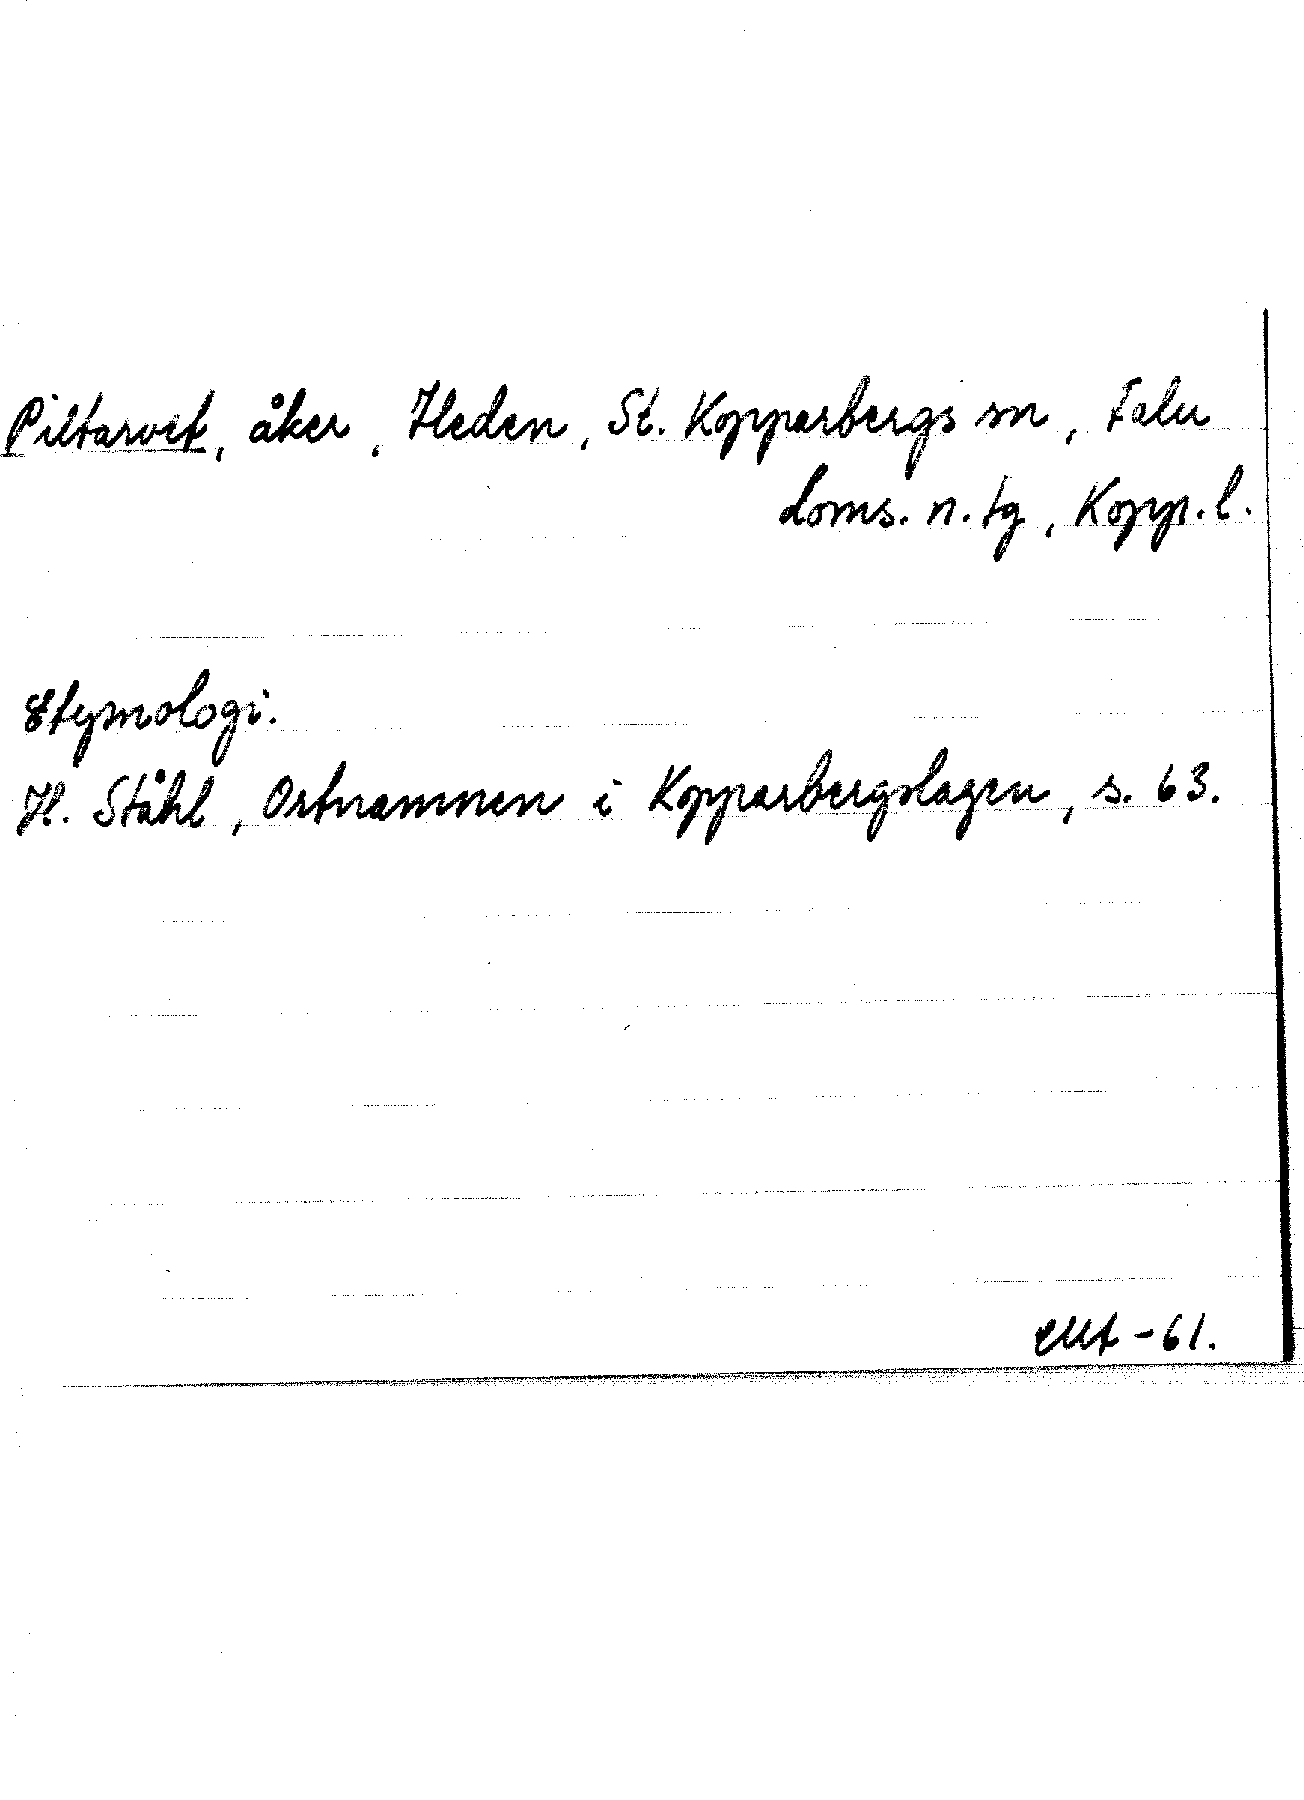 Piltarvet, åker, Heden, St. Kopparbergs sn, Falu
doms. n. tg, Kopp. l.
Etymologi.
H. Ståhl, Ortnamnen i Kopparbergslagen, s. 63.
-61.